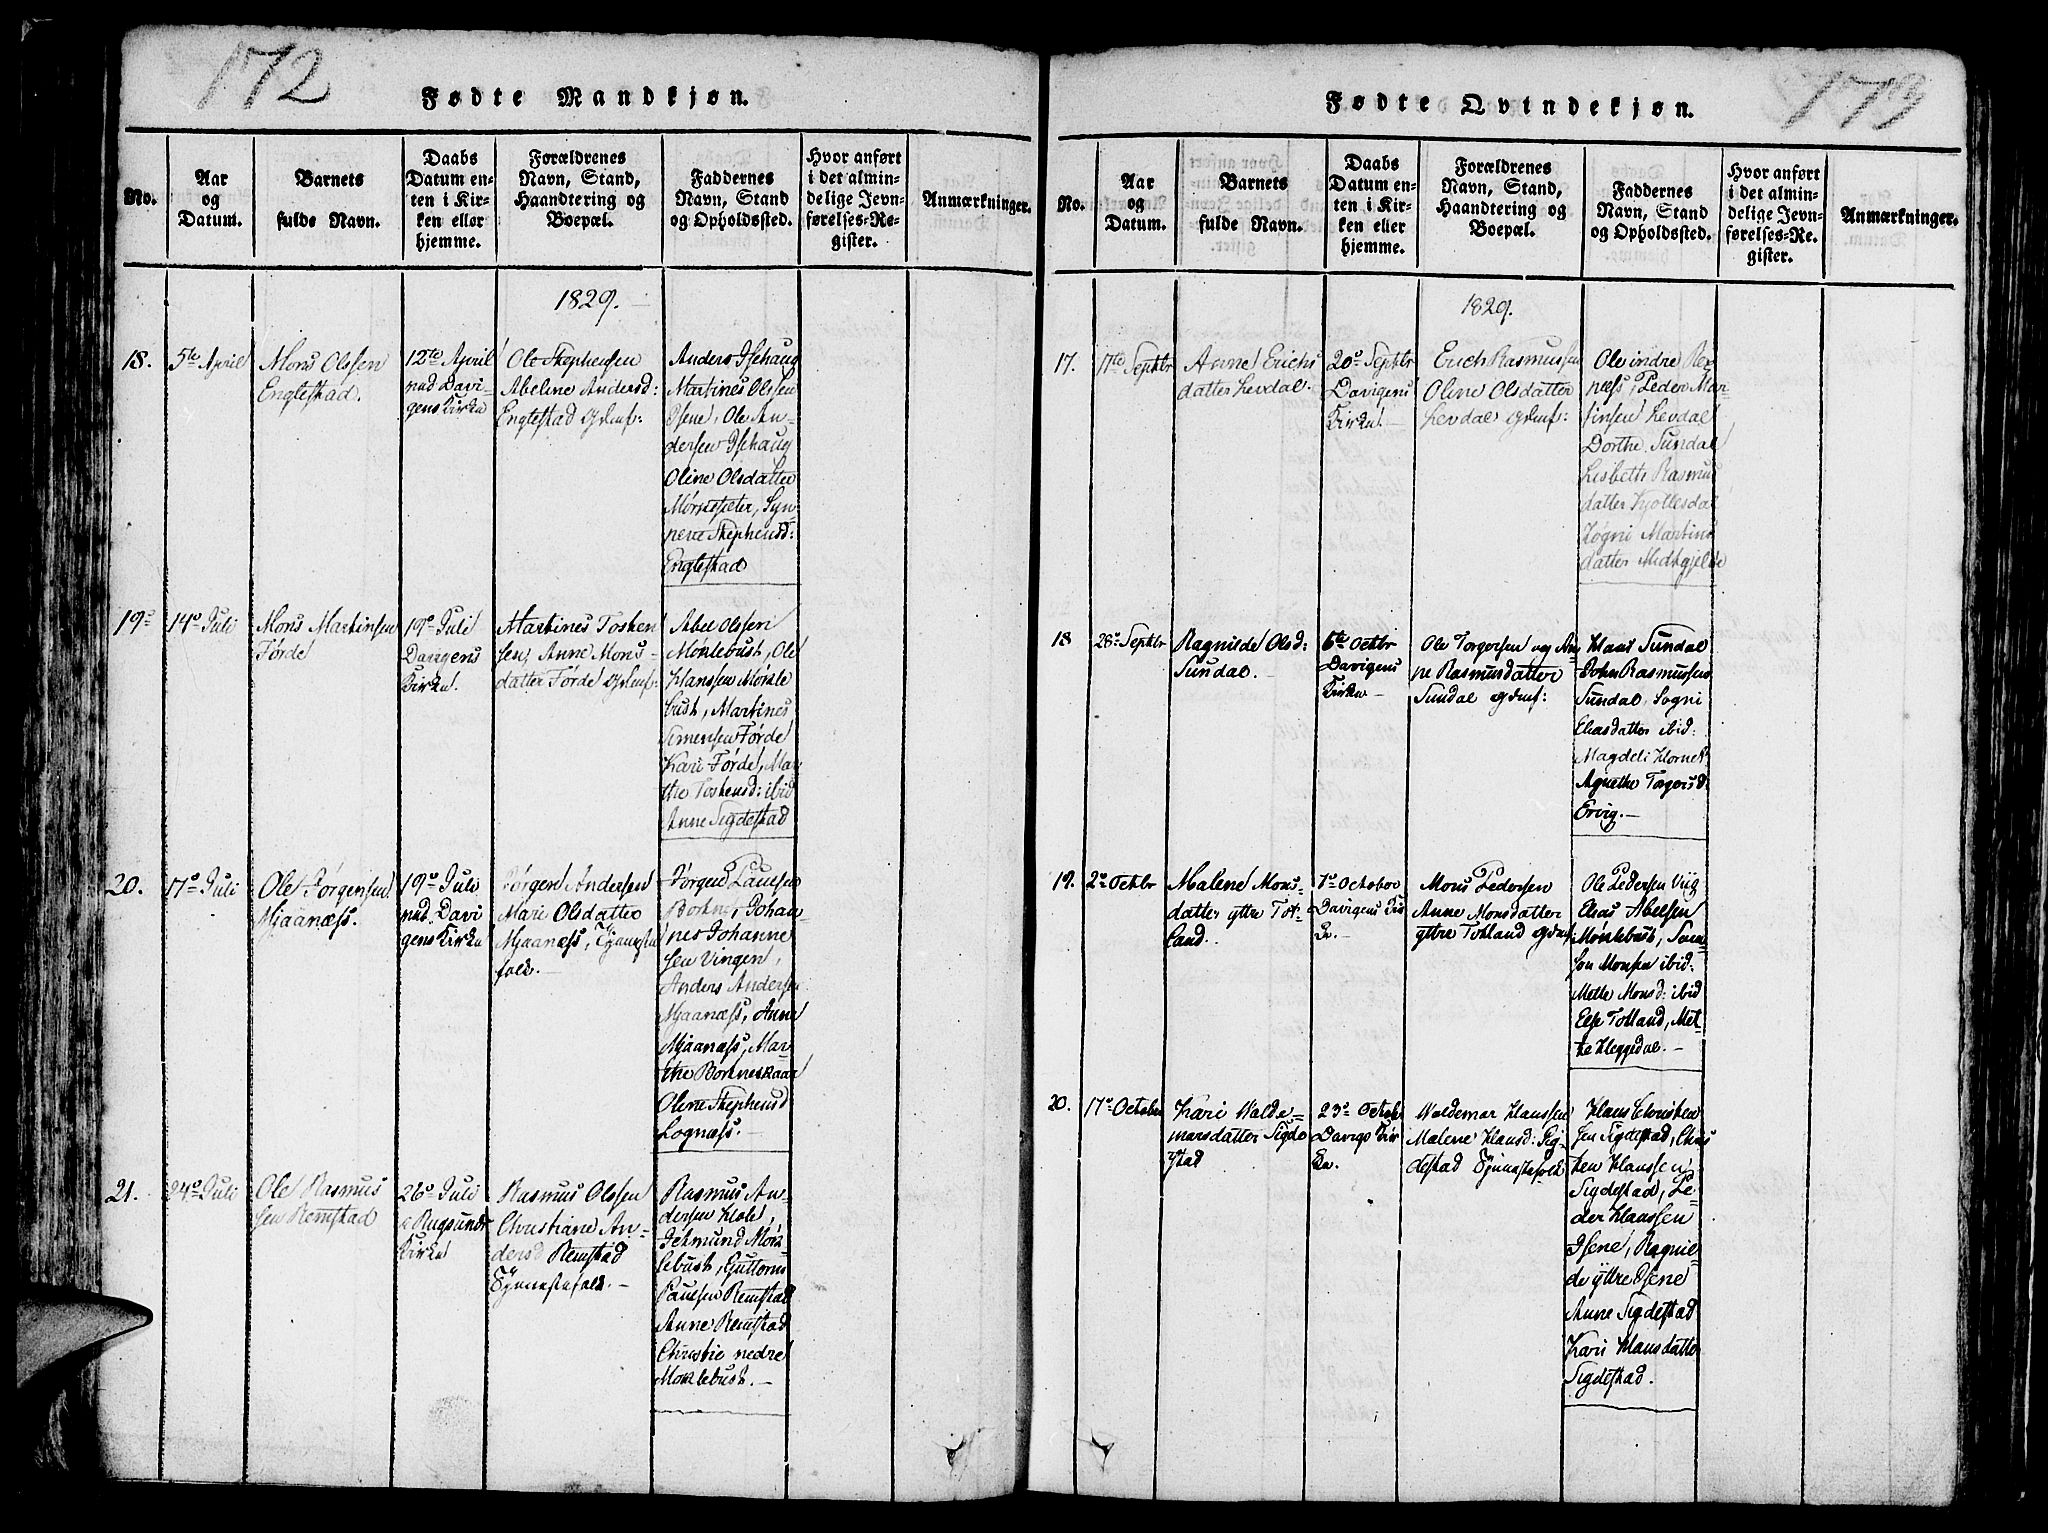 172
Fødte Mandkjøn.
No.
Aar
og
Datum.
Barnets
fulde Navn.
Daabs
Datum en-
ten i Kir-
ken eller
hjemme.
Forældrenes
Navn, Stand,
Haandtering og
Boepæl.
Faddernes
Navn, Stand
og Opholdssted.
Hvor anført
i det almin-
delige Jevn-
førelses-Re-
gister.
Anmærkninger.
1829.
18.
5te April
Mons Olssen
Englestad.
12te April
ved Davi-
gens Kirke
Ole Stephensen
Abelone Andersd:
Englestad
Anders Isehaug
Martines Olssen
Isene, Ole An-
dersen Isehaug
Oline Olsdatter
Mørkesæter, Syn-
neve Stephensd:
Englestad
19
14 Juli
Mons Martinsen
Førde
19 Juli
Davigens
Kirke.
Martines Tosten
sen, Anne Mons-
datter Førde
Abel Olssen
Moklebust, Ole
Hanssen Møkle
bust, Martines
Simensen Førde
Kari Førde, Mar
the Tostensd: ibid
Anne Sigdestad
20.
17 Juli
Ole Jørgensen
Mjaanæss.
19 Juli
ved Davi
gens Kirke
Jørgen Andersen
Mari Olsdatter
Mjaanæss, Tjeneste
folk.
Jørgen Paulsen
Johan-
nes Johanne
sen Vingen,
Anders Andersen
Mjaanæss, Anne
Mjaanæss, Mar-
the Bortneskaar
Olene Stephensd
Lognæss.
21.
24 Juli
Ole Rasmus
sen Remstad
26 Juli
i Rugsund
Kirke
Rasmus Olssen
Christiane An-
dersd Remstad
Tjenestefolk.
Rasmus An-
dersen Hole,
Gudmund Møk
lebust, Guttorm
Paulsen Remstad
Anne Remstad
Christie nedre
Moklebust.
173
Fødte Qvindekjøn.
No.
Aar
og
Datum.
Barnets
fulde Navn.
Daabs
Datum en-
ten i Kir-
ken eller
hjemme.
Forældrenes
Navn, Stand,
Haandtering og
Boepæl.
Faddernes
Navn, Stand
og Opholdssted.
Hvor anført
i det almin-
delige Jevn-
førelses-Re-
gister.
Anmærkninger.
1829.
17.
17te Septbr
Anne Erichs
datter Levdal.
20 Septbr
Davigens
Kirke.
Erich Rasmussen
Oline Olsdatter
Levdal
Ole indre
Peder Mar-
tinsen Levdal
Dorthe Sundal
Lisbeth Rasmus
datter Hjollesdal
Martins
datter Midtgjelve
18
28 Septbr
Ragnilde Olsd:
Sundal.
6te Octbr
Davigens
Kirke
Ole Torgersen og An
ne Rasmusdatter
Sundal
Hans Sundal
John Rasmussen
Sundal, Sogni
Eliasdatter ibid:
Magdeli Hornet
Agnethe Torgersd:
Ervig.
19.
2 Octbr
Malene Mons-
datter yttre Tot-
land.
7 October
Davigens Kir
ke.
Mons Pedersen
Anne Monsdatter
yttre Totland
Ole Pedersen Viig
Elias Abelsen
Møklebust, Sam-
son Monsen ibid:
Mette Monsd: ibid
Else Totland, Met-
te Heggedal.
20.
17 October
Kari Walde-
marsdatter Sigde
stad
23 Octobr
Davigs Kir
ke.
Waldemar Hanssen
Malene Hansd: Sig-
destad Tjenestefolk
Hans Christen
sen Sigdestad, Chris
ten Hanssen
Sigdestad, Pe-
der Hanssen
Isene, Ragnil-
de yttre Isene
Anne Sigdestad
Kari Hansdatter
Sigdestad.